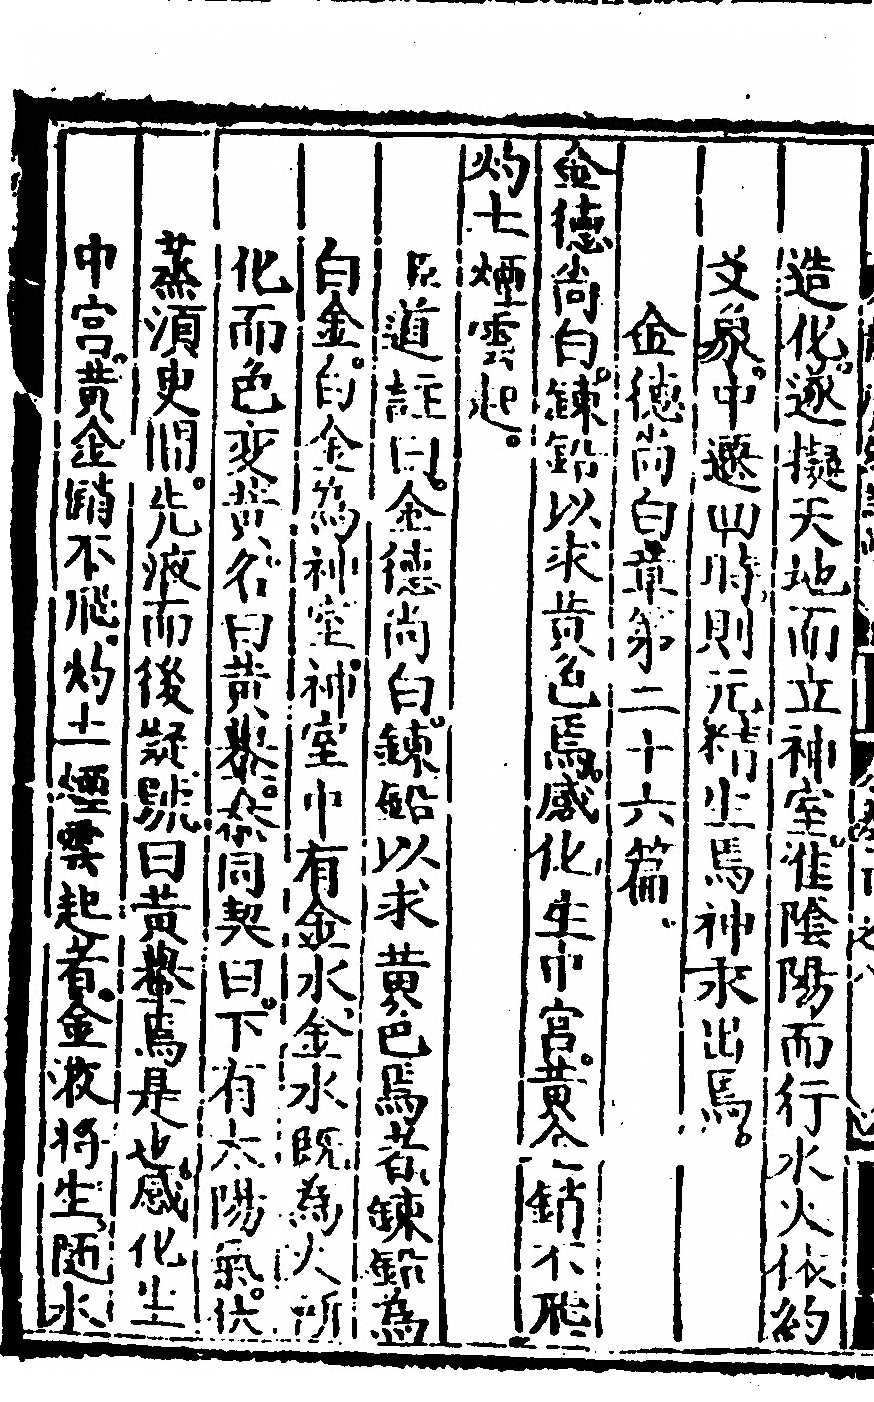 造化遂擬天地而立神室准陰陽而行水火依約
爻象中遷四時則元精生焉神永出焉
金德尚白章第二十六篇
金德尚白鍊鉛以求黃色焉感化生中宮黃金銷不飛
灼土煙雲起
道註曰金德尚白鍊鉛以求黃色焉者鍊鉛為
白金白金為神室神室中有金水金水既為火所
化而色变黄名曰黄轝叅同契曰下有太陽氣伏
蒸須臾間先液而後凝號曰黃轝焉是也感化生
中宮黃金銷不飛灼土煙雲起者金液將生随水